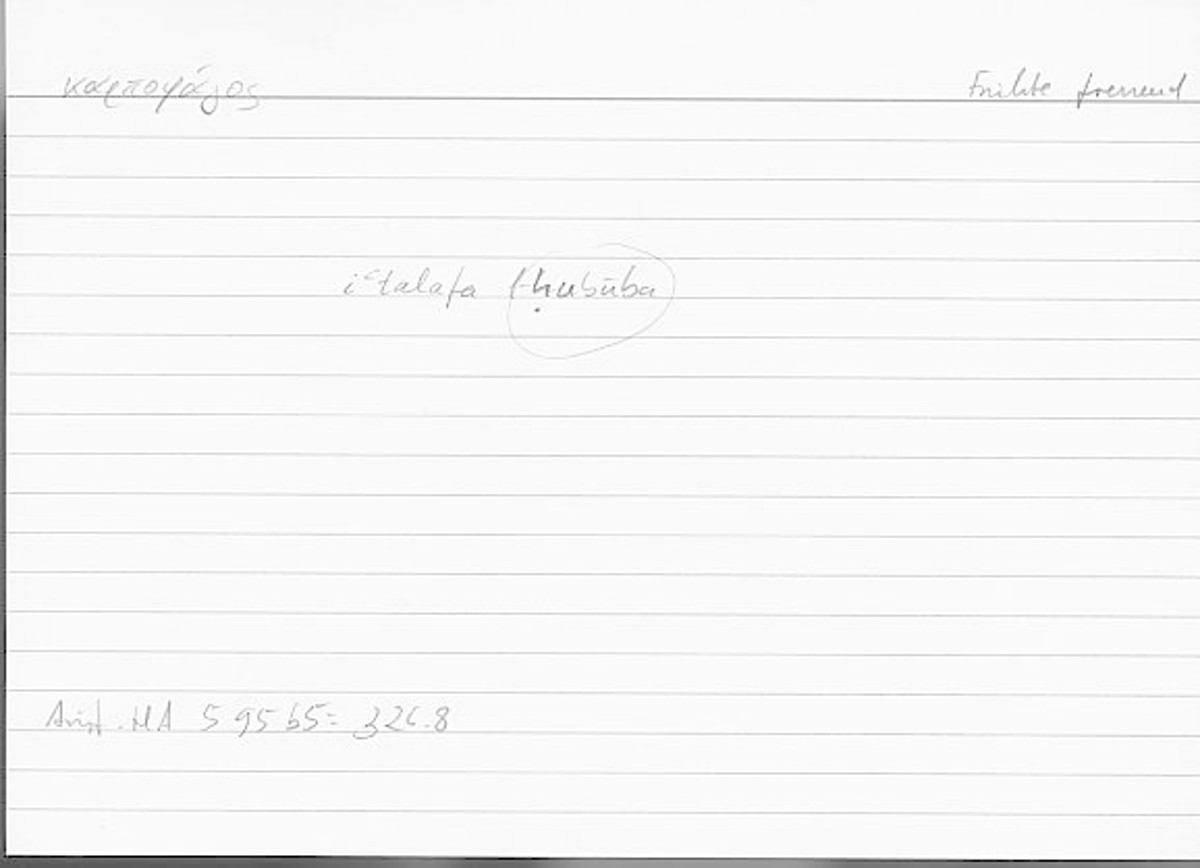 καρποφάγος Früchte fressend
iʿtalafa l-ḥubūba
Arist. HA 595b5 = 326.8